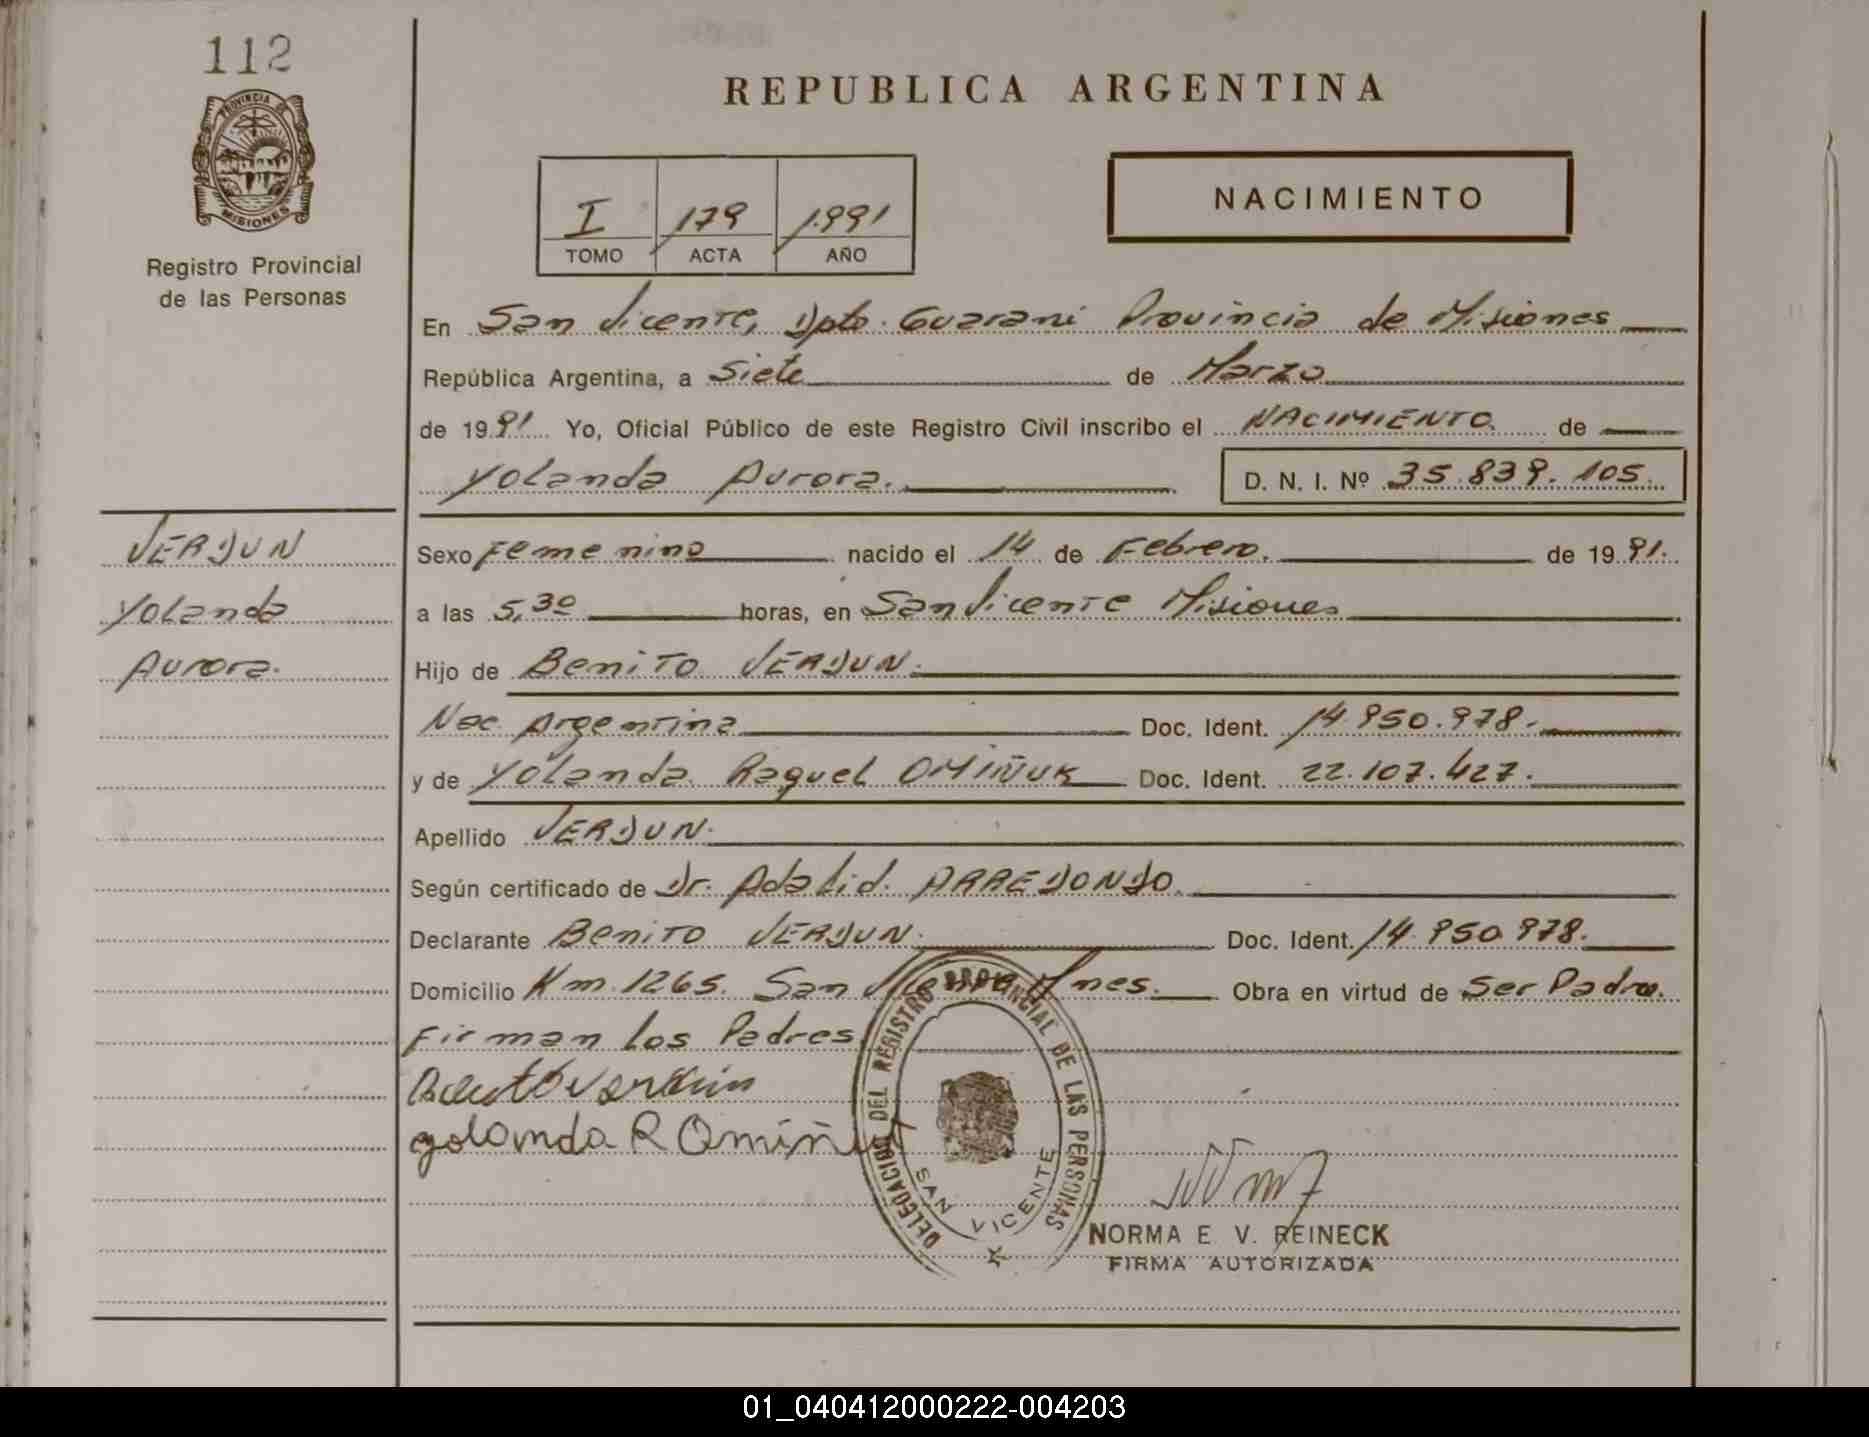 112
PROVINCIA DE
MISIONES
Registro Provincial
de las Personas
REPUBLICA ARGENTINA
I 179 1991
TOMO ACTA AÑO
NACIMIENTO
En San Vicente, Dpto. Guarani Provincia de Misiones
República Argentina, a Siete de Marzo
de 1991 Yo, Oficial Público de este Registro Civil inscribo el NACIMIENTO de
Yolanda Aurora. D. N. I. Nº 35.839.105
VERDUN
Yolanda
Aurora.
Sexo Femenino nacido el 14 de Febrero. de 1991.
a las 5,30 horas, en San Vicente Misiones
Hijo de Benito VERDUN.
Nac. Argentina Doc. Ident. 14.950.978.
y de Yolanda Raquel OMIÑUK Doc. Ident. 22.107.427.
Apellido VERDUN.
Según certificado de Dr. Adalid. ARREDONDO.
Declarante Benito VERDUN. Doc. Ident. 14.950.978.
Domicilio Km. 1265. San Vicente Mnes. Obra en virtud de Ser Padre.
Firman los Padres
Benito Verdun
Yolanda R Omiñuk
DELEGACION DEL REGISTRO PROVINCIAL DE LAS PERSONAS
SAN VICENTE
NORMA E. V. REINECK
FIRMA AUTORIZADA
01_040412000222-004203